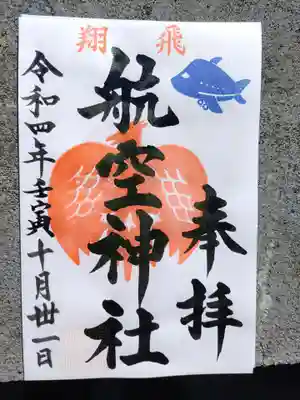 飛翔
奉拝
航空神社
令和四年壬寅十月卅一日